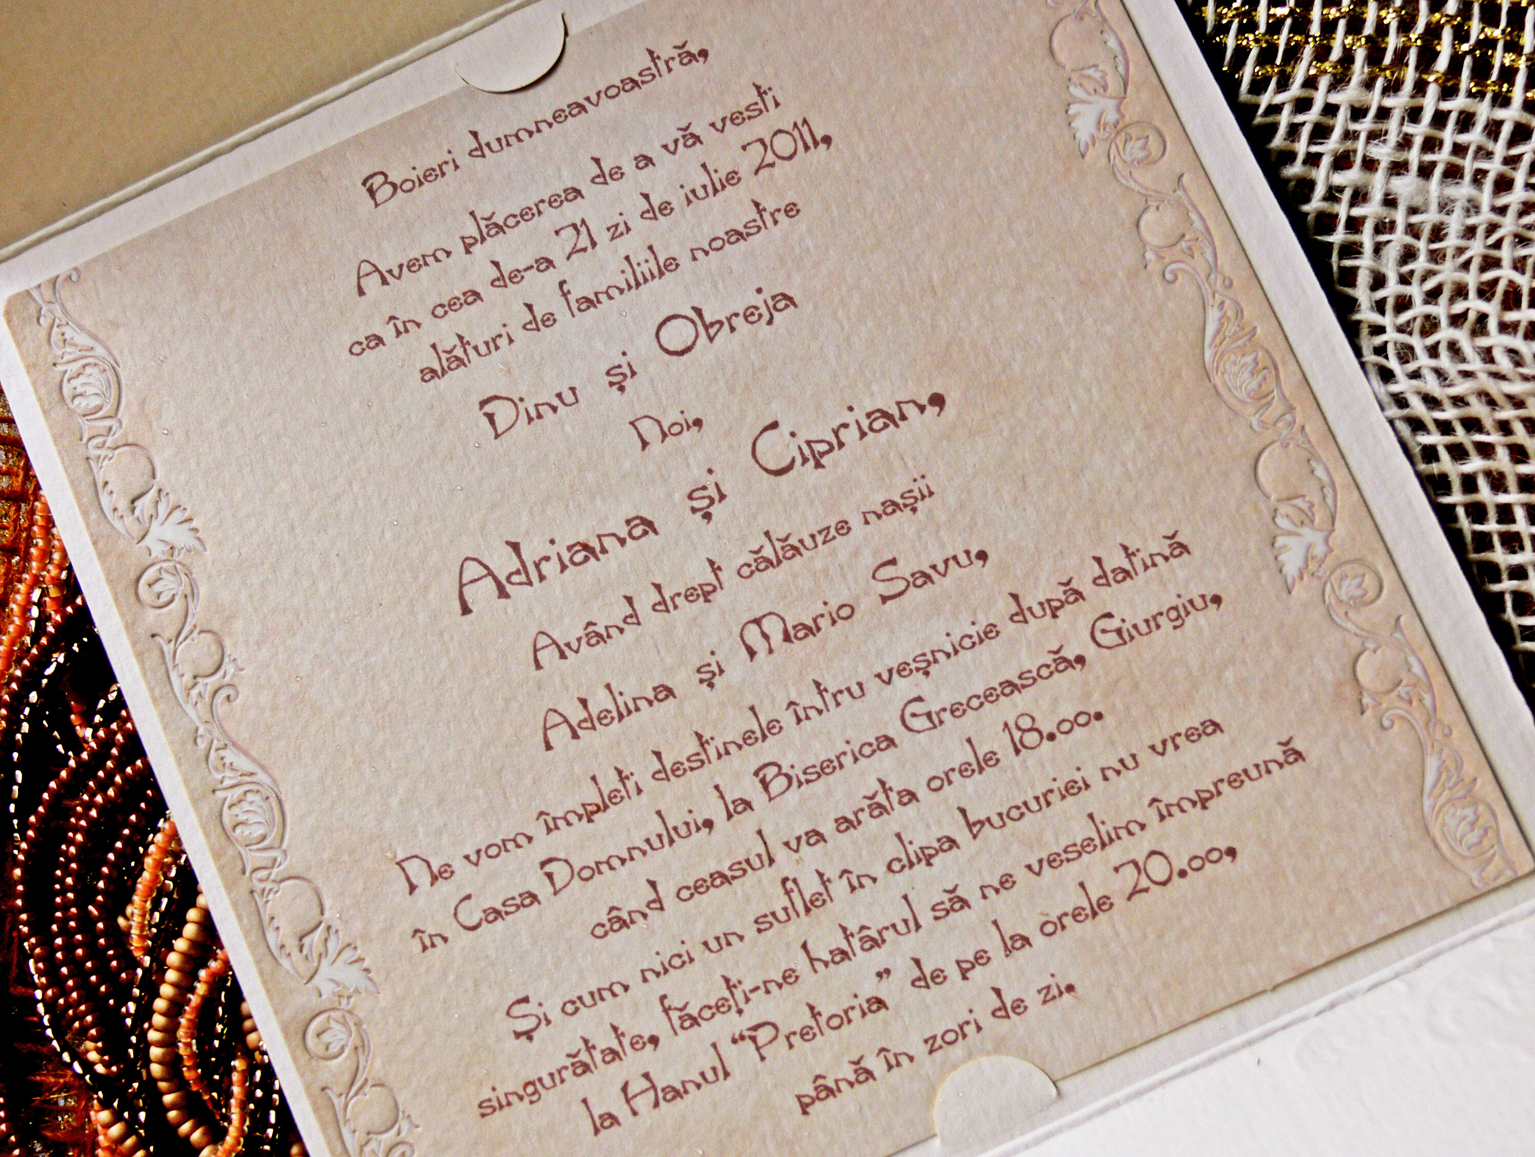 Boieri dumneavoastră,
Avem plăcerea de a vă vesti
ca în cea de-a 21 zi de iulie 2011,
alături de familiile noastre
Dinu și Obreja
Noi,
Adriana și Ciprian,
Având drept călăuze nașii
Adelina și Mario Savu,
Ne vom împleti destinele întru veșnicie după datină
în Casa Domnului, la Biserica Grecească, Giurgiu,
când ceasul va arăta orele 18.oo.
Și cum nici un suflet în clipa bucuriei nu vrea
singurătate, faceți-ne hatârul să ne veselim împreună
la Hanul “Pretoria” de pe la orele 20.oo,
până în zori de zi.